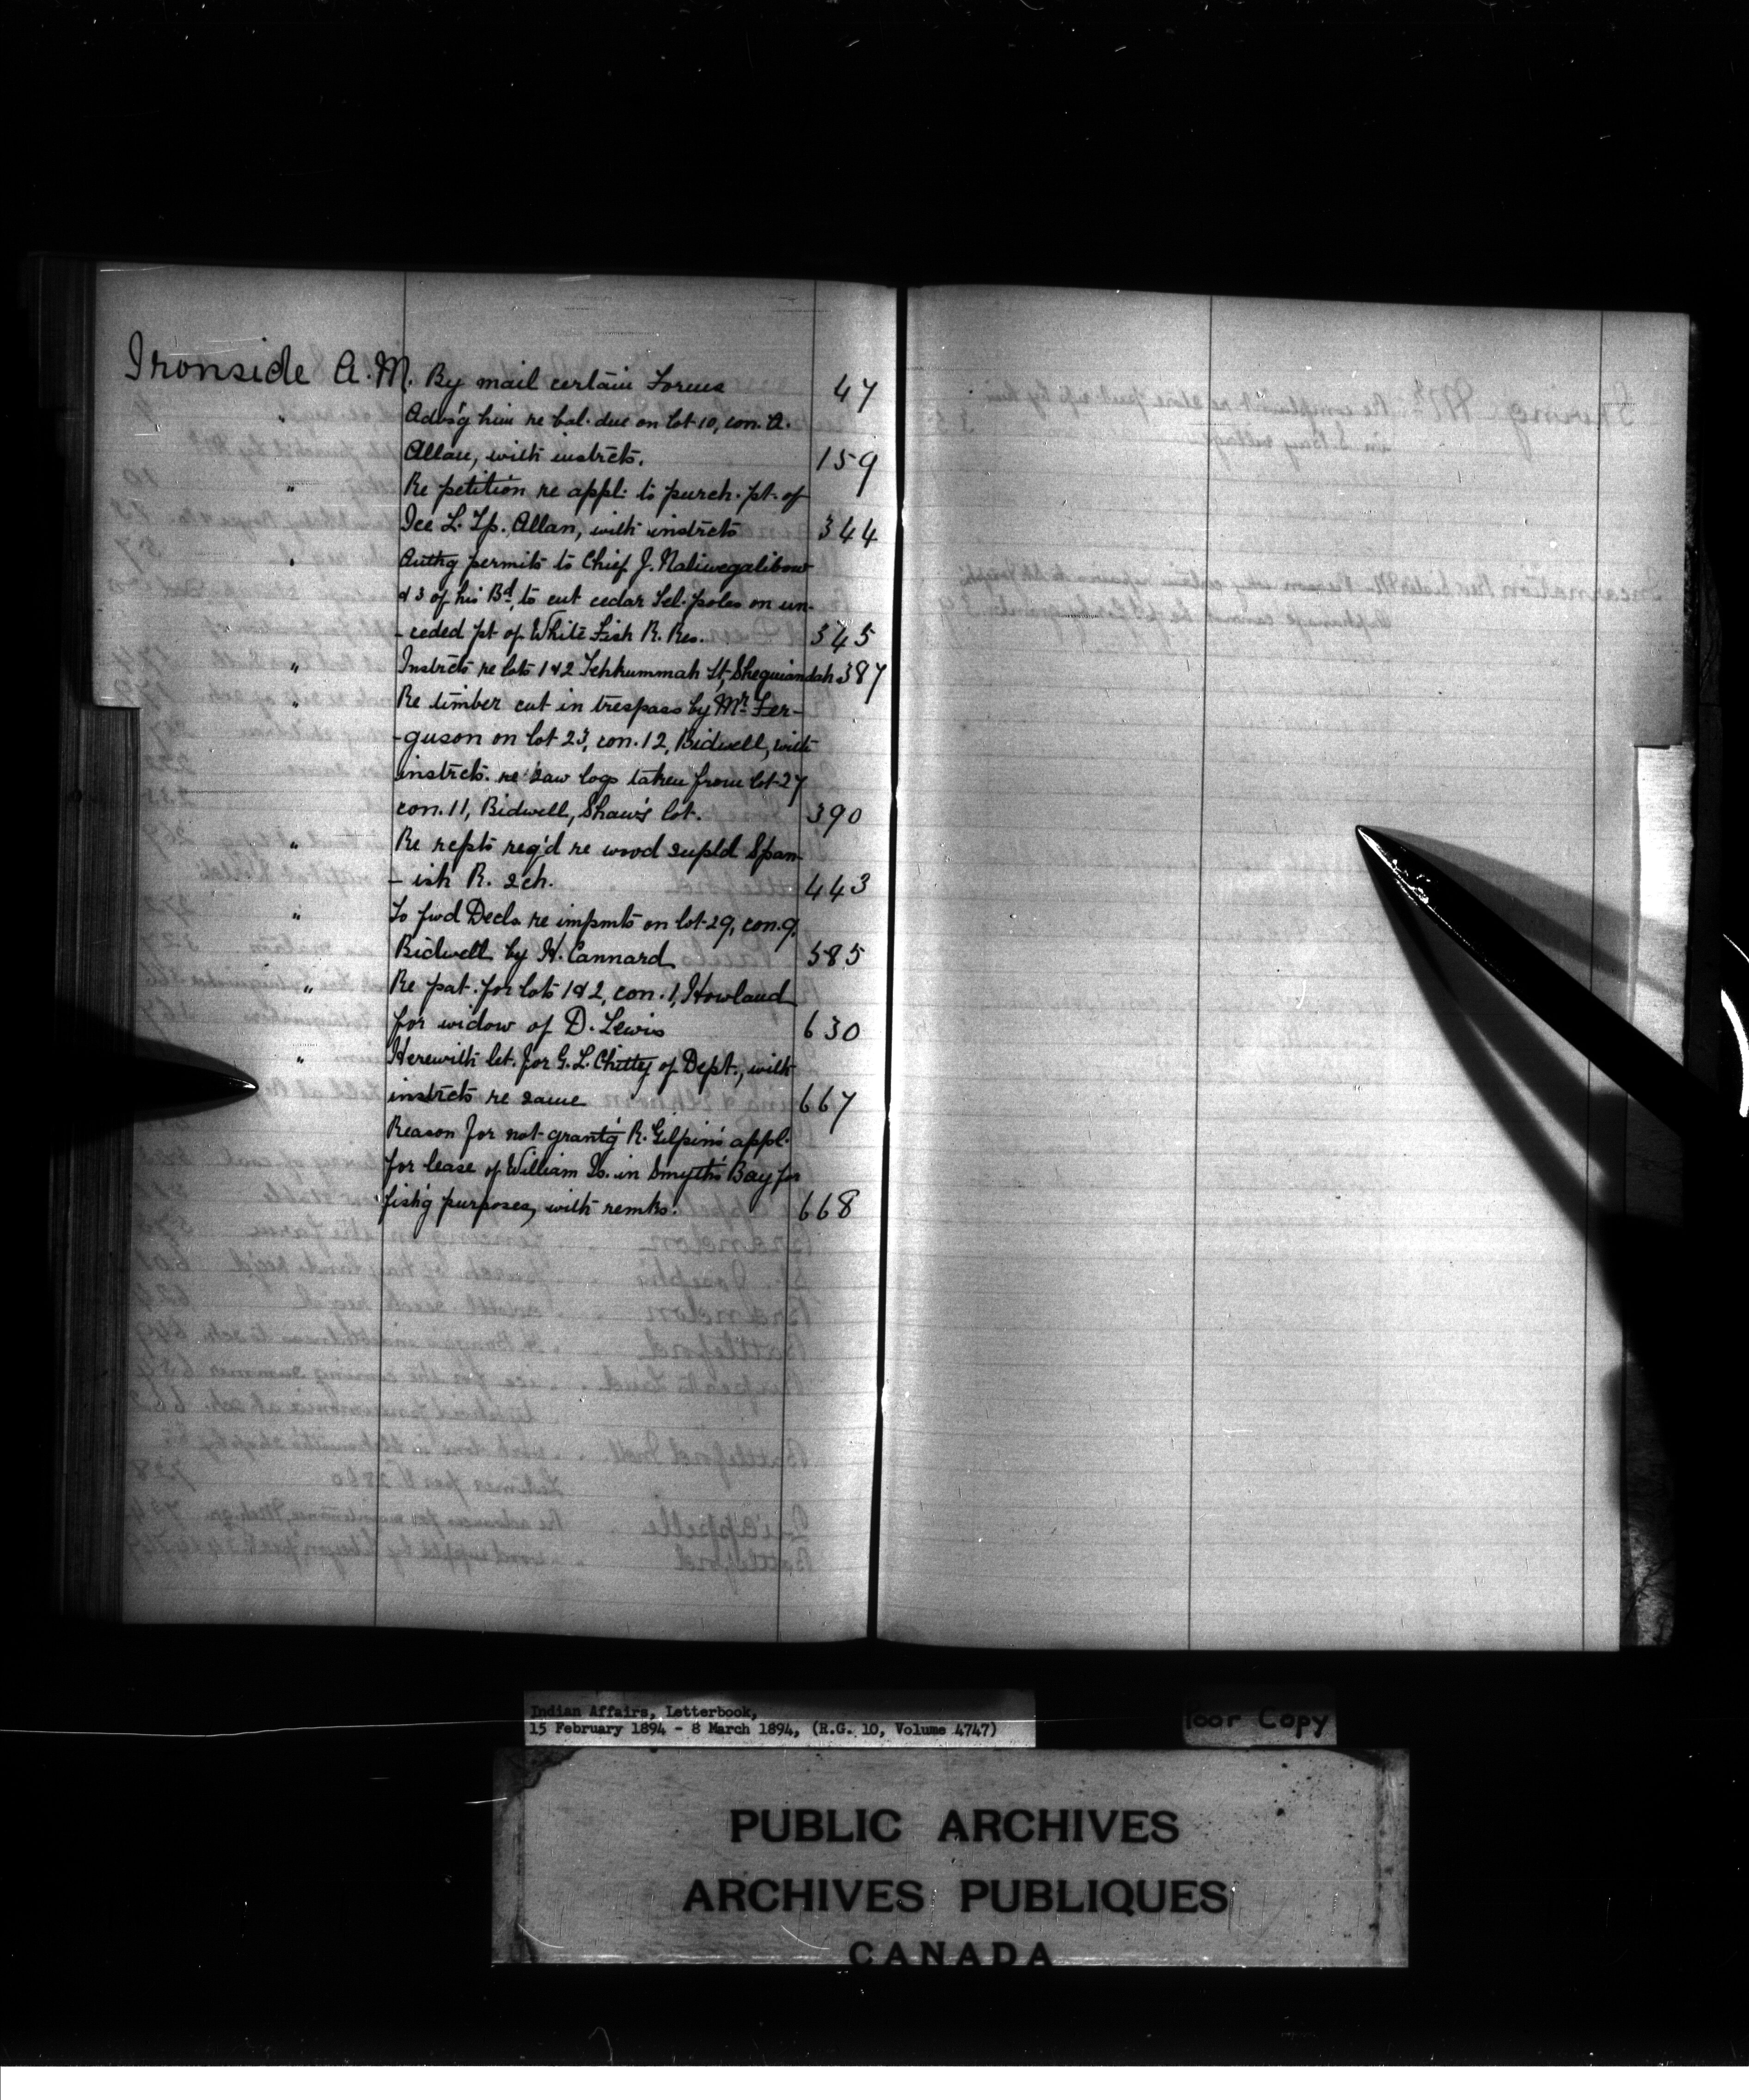 Ironside A.M. By mail certain Forms 47
" Advs'g him re bal. due on lot 10, con. A.
Allan, with instrcts. 159
" Re petition re appl: to purch. pt. of
Ice L. Tp. Allan, with instrcts 344
" Authg permits to Chief J.
& 3 of his Bd, to cut cedar Tel. poles on un-
-ceded pt of White Fish R. Res. 345
" Instrcts re lots 1 & 2 Tehkummah St, Sheguiandah 387
" Re timber cut in trespass by Mr. Fer-
-guson on lot 23, con. 12, Bidwell, with
instrcts. re saw logs taken from lot 27
con. 11, Bidwell, Shaw's lot. 390
" Re repts req'd re wood supld Span-
-ish R. sch. 443
" To fwd Decls re impmts on lot 29, con. 9,
Bidwell by H. Cannard 585
" Re pat. for lots 1 & 2, con. 1, Howland
for widow of D. Lewis 630
" Herewith let. for G. L. Chitty of Dept., with
instrcts re same 667
Reason for not grant'g R. Gilpin's appl.
for lease of William Is. in Smyth's Bay for
fish'g purposes, with remks. 668
Indian Affairs, Letterbook,
15 February 1894 - 8 March 1894, (R.G. 10, Volume 4747)
Poor Copy
PUBLIC ARCHIVES
ARCHIVES PUBLIQUES
CANADA